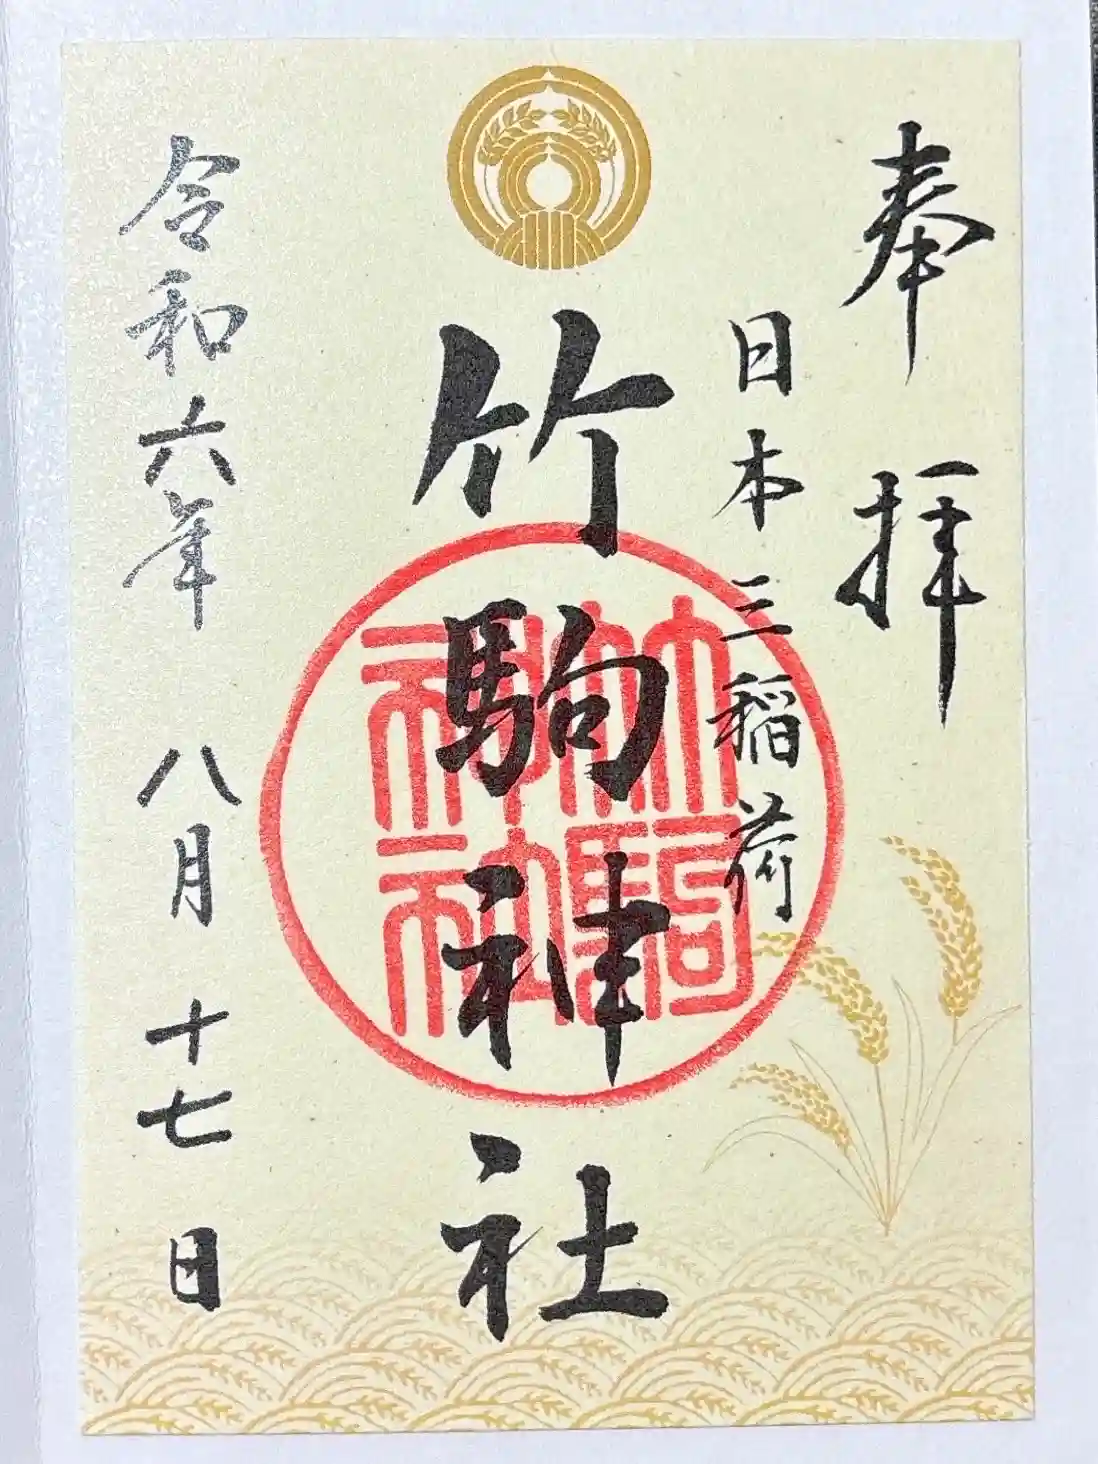 奉拝
日本三稲荷
竹駒神社
竹駒
神社
令和六年 八月 十七日